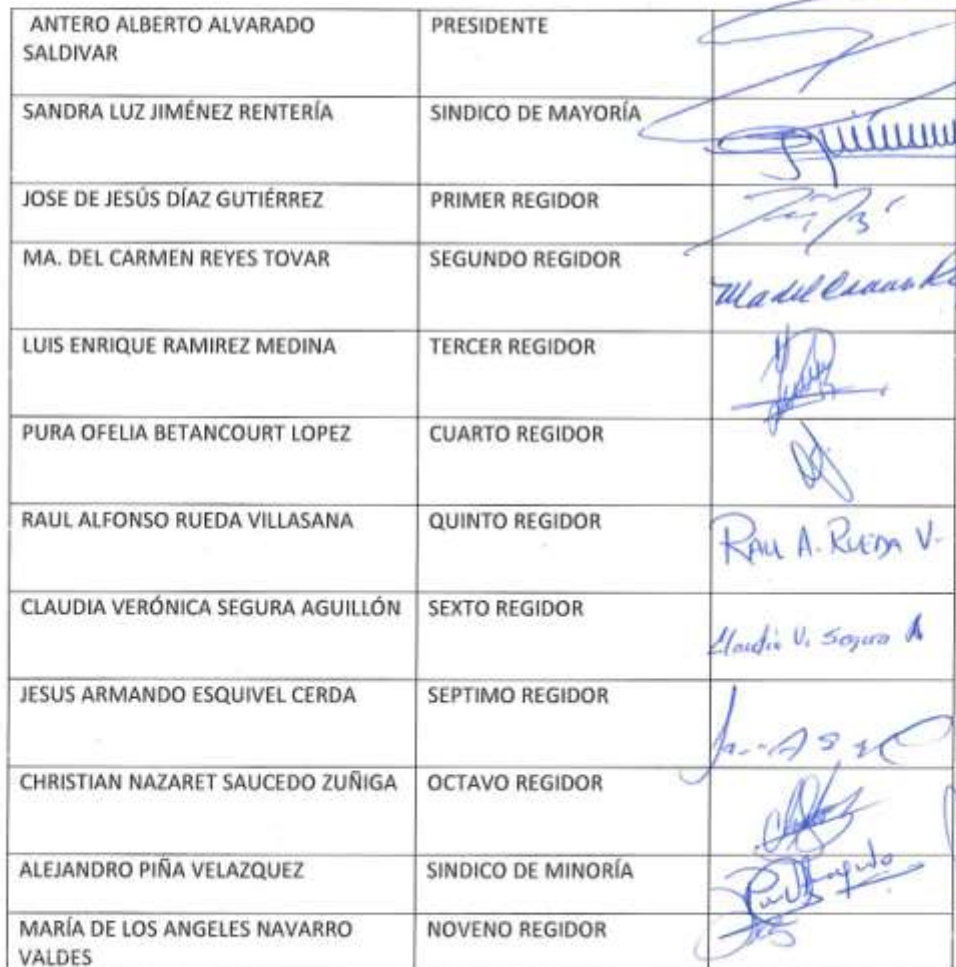 ANTERO ALBERTO ALVARADO PRESIDENTE
SALDIVAR
SANDRA LUZ JIMÉNEZ RENTERÍA SINDICO DE MAYORÍA
JOSE DE JESÚS DÍAZ GUTIÉRREZ PRIMER REGIDOR
MA. DEL CARMEN REYES TOVAR SEGUNDO REGIDOR
LUIS ENRIQUE RAMIREZ MEDINA TERCER REGIDOR
PURA OFELIA BETANCOURT LOPEZ CUARTO REGIDOR
RAUL ALFONSO RUEDA VILLASANA QUINTO REGIDOR
RAUL A. RUEDA V.
CLAUDIA VERÓNICA SEGURA AGUILLÓN SEXTO REGIDOR
Claudia V. Segura A
JESUS ARMANDO ESQUIVEL CERDA SEPTIMO REGIDOR
CHRISTIAN NAZARET SAUCEDO ZUÑIGA OCTAVO REGIDOR
ALEJANDRO PIÑA VELAZQUEZ SINDICO DE MINORÍA
MARÍA DE LOS ANGELES NAVARRO NOVENO REGIDOR
VALDES